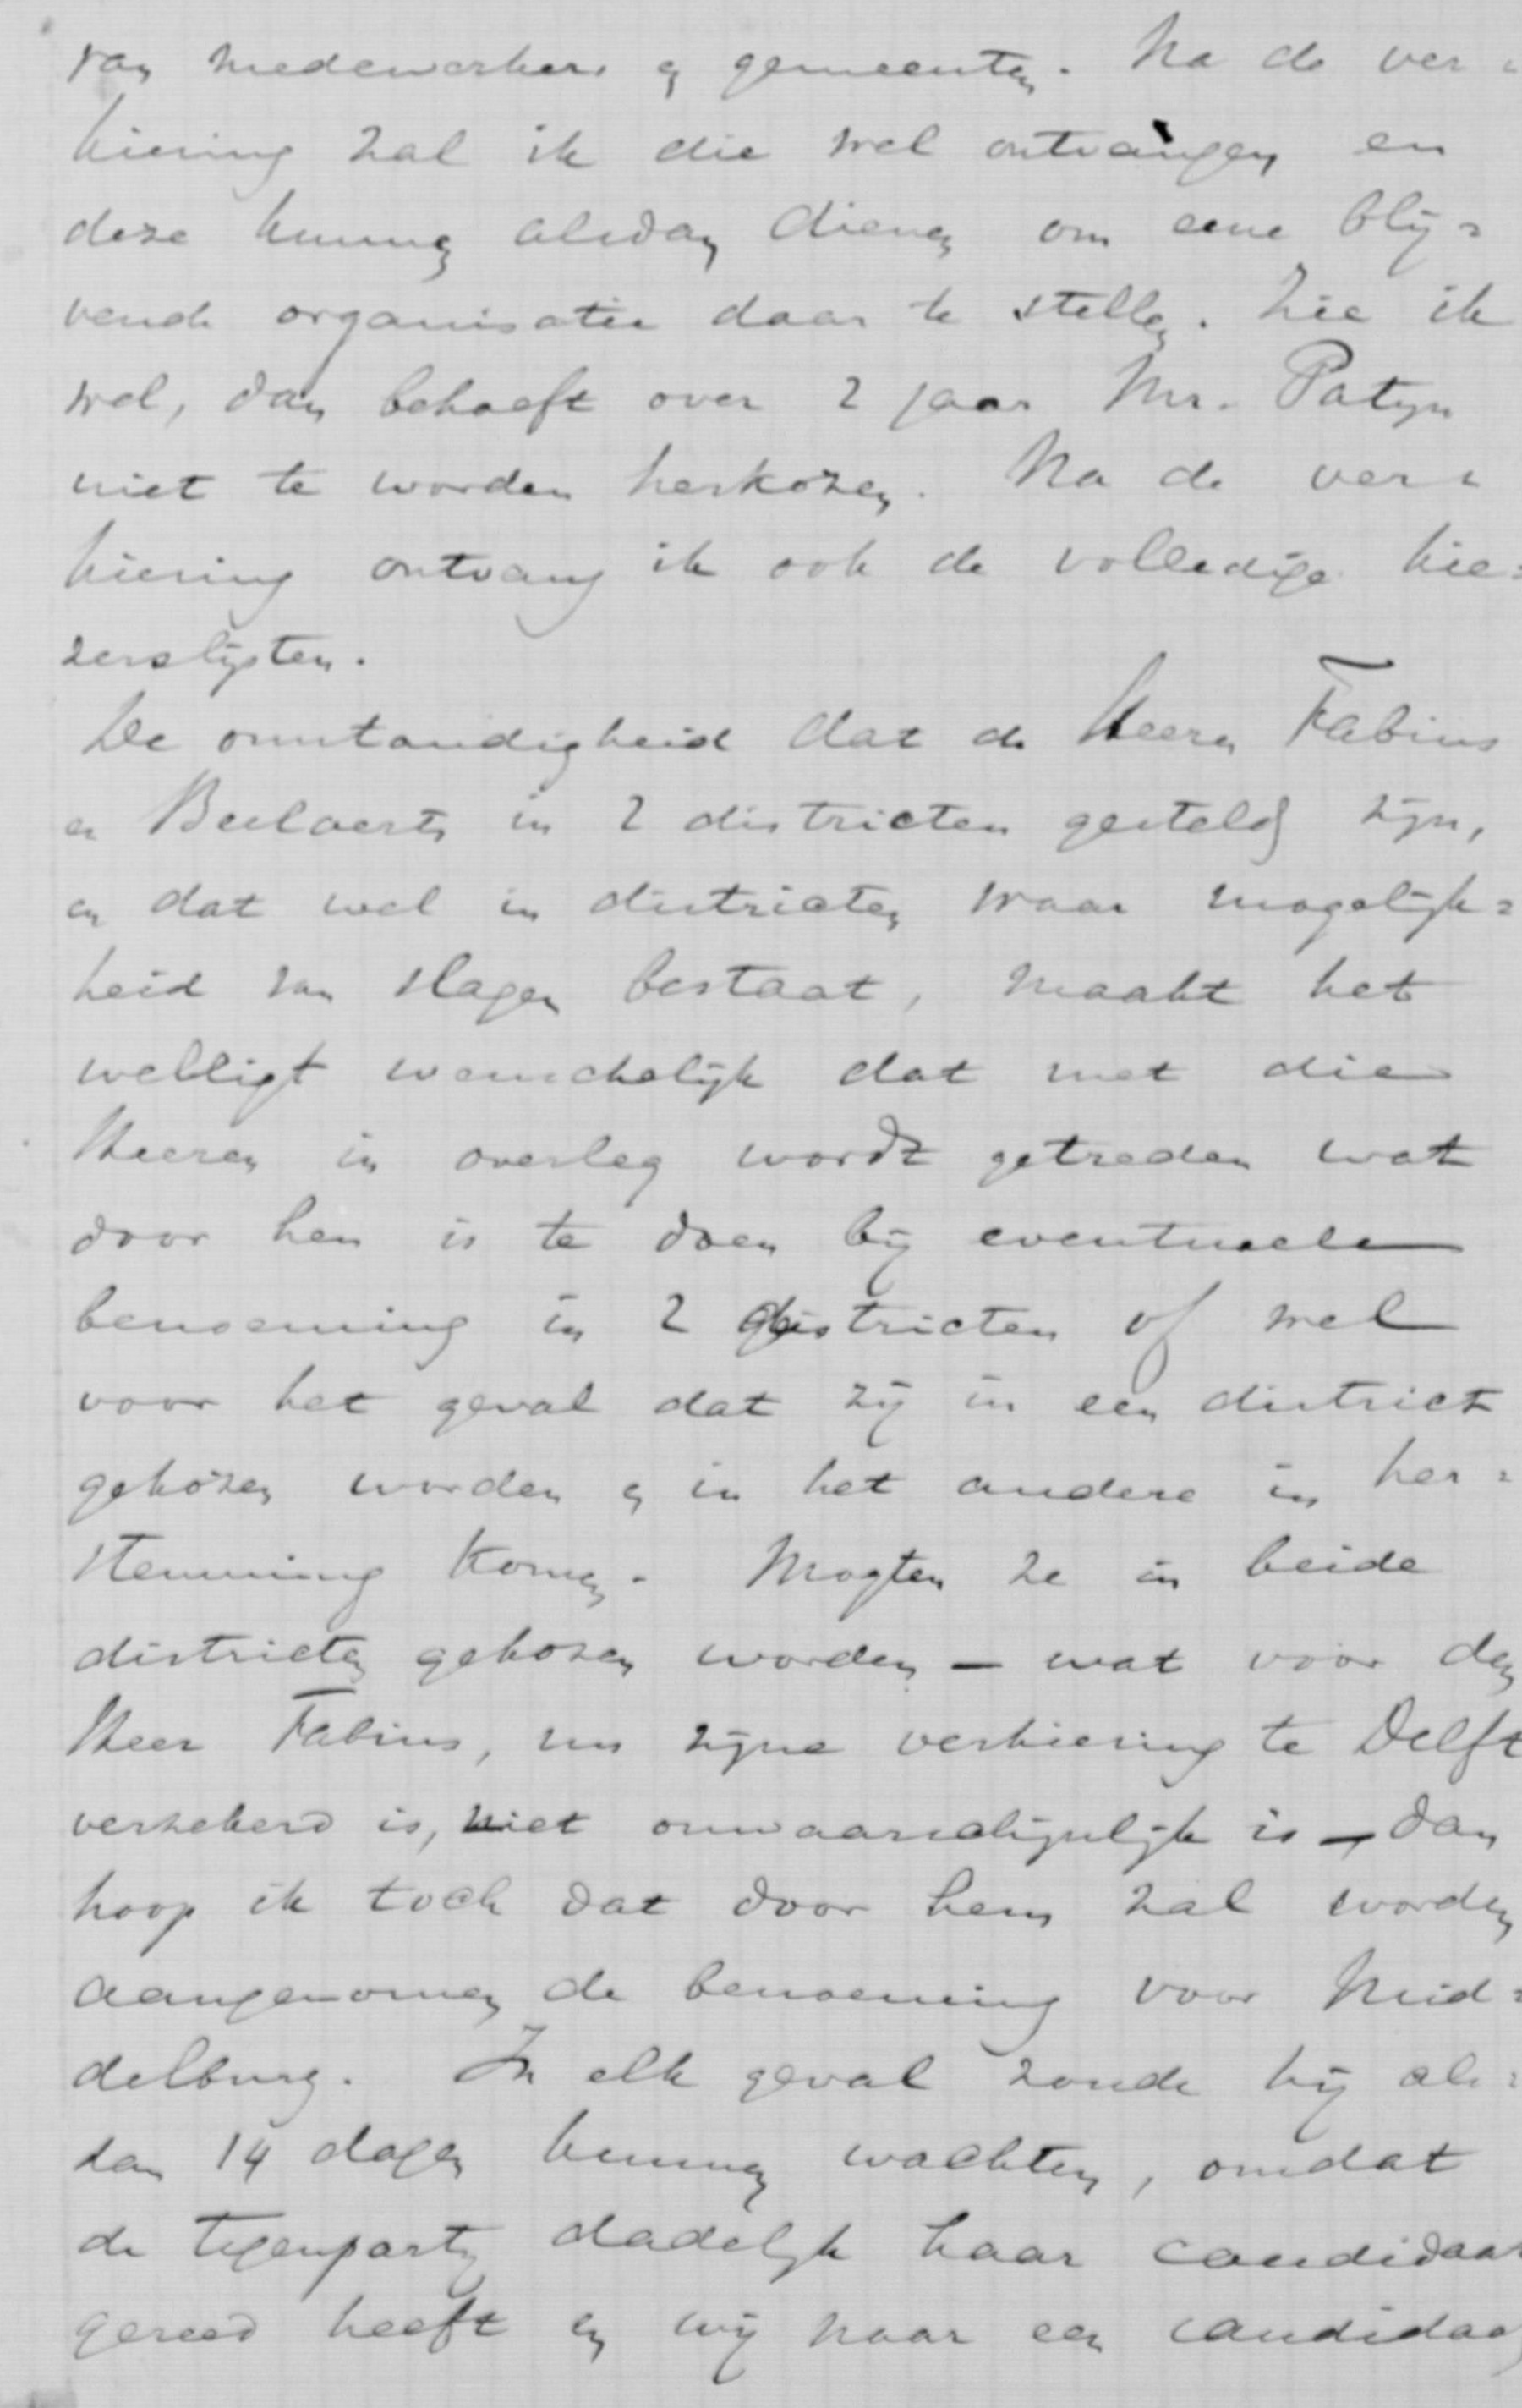 van medewerkers en gemeenten. Na de ver=
kiezing zal ik die wel ontvangen en
deze kunnen alsdan dienen om eene blij=
vende organisatie daar te stellen. Zie ik
wel, dan behoeft over 2 jaar Mr. Patijn
niet te worden herkozen. Na de ver=
kiezing ontvang ik ook de volledige kie=
zerslijsten.
De omstandigheid dat de Heeren Fabius
en Beelaerts in 2 districten gesteld zijn,
en dat wel in districten waar mogelijk=
heid van slagen bestaat, maakt het
welligt wenschelijk dat met die
Heeren in overleg wordt getreden wat
door hen is te doen bij eventueele
benoeming in 2 districten of wel
voor het geval dat zij in een district
gekozen worden en in het andere in her=
stemming komen. Mogten ze in beide
districten gekozen worden — wat voor den
Heer Fabius, nu zijne verkiezing te Delft
verzekerd is, niet onwaarschijnlijk is — dan
hoop ik toch dat door hem zal worden
aangenomen de benoeming voor Mid=
delburg. In elk geval zoude hij als=
dan 14 dagen kunnen wachten, omdat
de tegenpartij dadelijk haar candidaat
gereed heeft en wij naar een candidaat